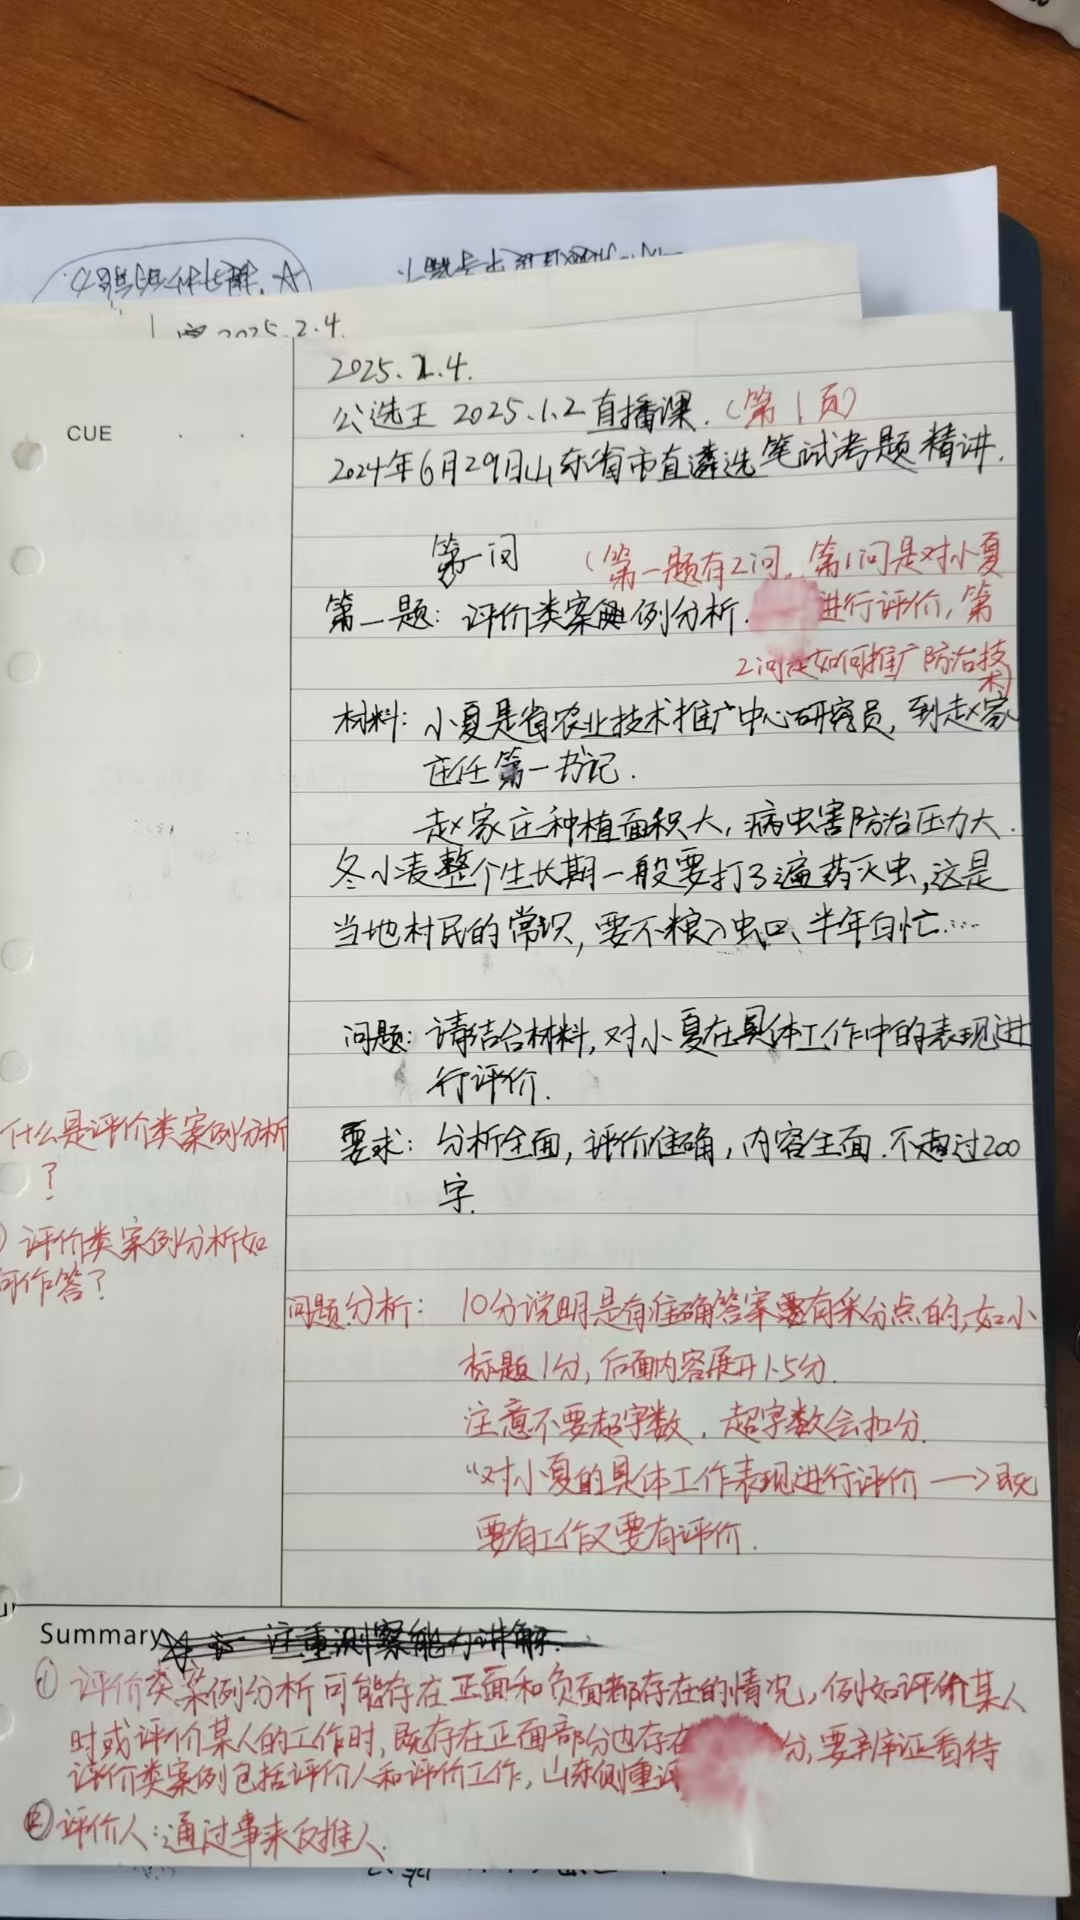 2025.2.4.
2025.2.4.
公选王 2025.1.2直播课.（第1页）
CUE
2024年6月29日山东省市直遴选笔试考题精讲.
第一问 （第一题有2问，第1问是对小夏
第一题：评价类案例分析. 进行评价，第
2问是如何推广防治技术）
材料：小夏是省农业技术推广中心研究员，到赵家
庄任第一书记.
赵家庄种植面积大，病虫害防治压力大.
冬小麦整个生长期一般要打3遍药灭虫，这是
当地村民的常识，要不粮入虫口、半年白忙……
问题：请结合材料，对小夏在具体工作中的表现进
行评价.
什么是评价类案例分析
？
要求：分析全面，评价准确，内容全面.不超过200
字.
评价类案例分析如
何作答？
问题分析：10分说明是有准确答案要有采分点的，如小
标题1分，后面内容展开1.5分.
注意不要超字数，超字数会扣分.
“对小夏的具体工作表现进行评价 → 既
要有工作又要有评价.
Summary
① 评价类案例分析可能存在正面和负面都存在的情况，例如评价某人
时或评价某人的工作时，既存在正面部分也存在 分，要辩证看待
评价类案例包括评价人和评价工作，山东侧重评
② 评价人：通过事来反推人.